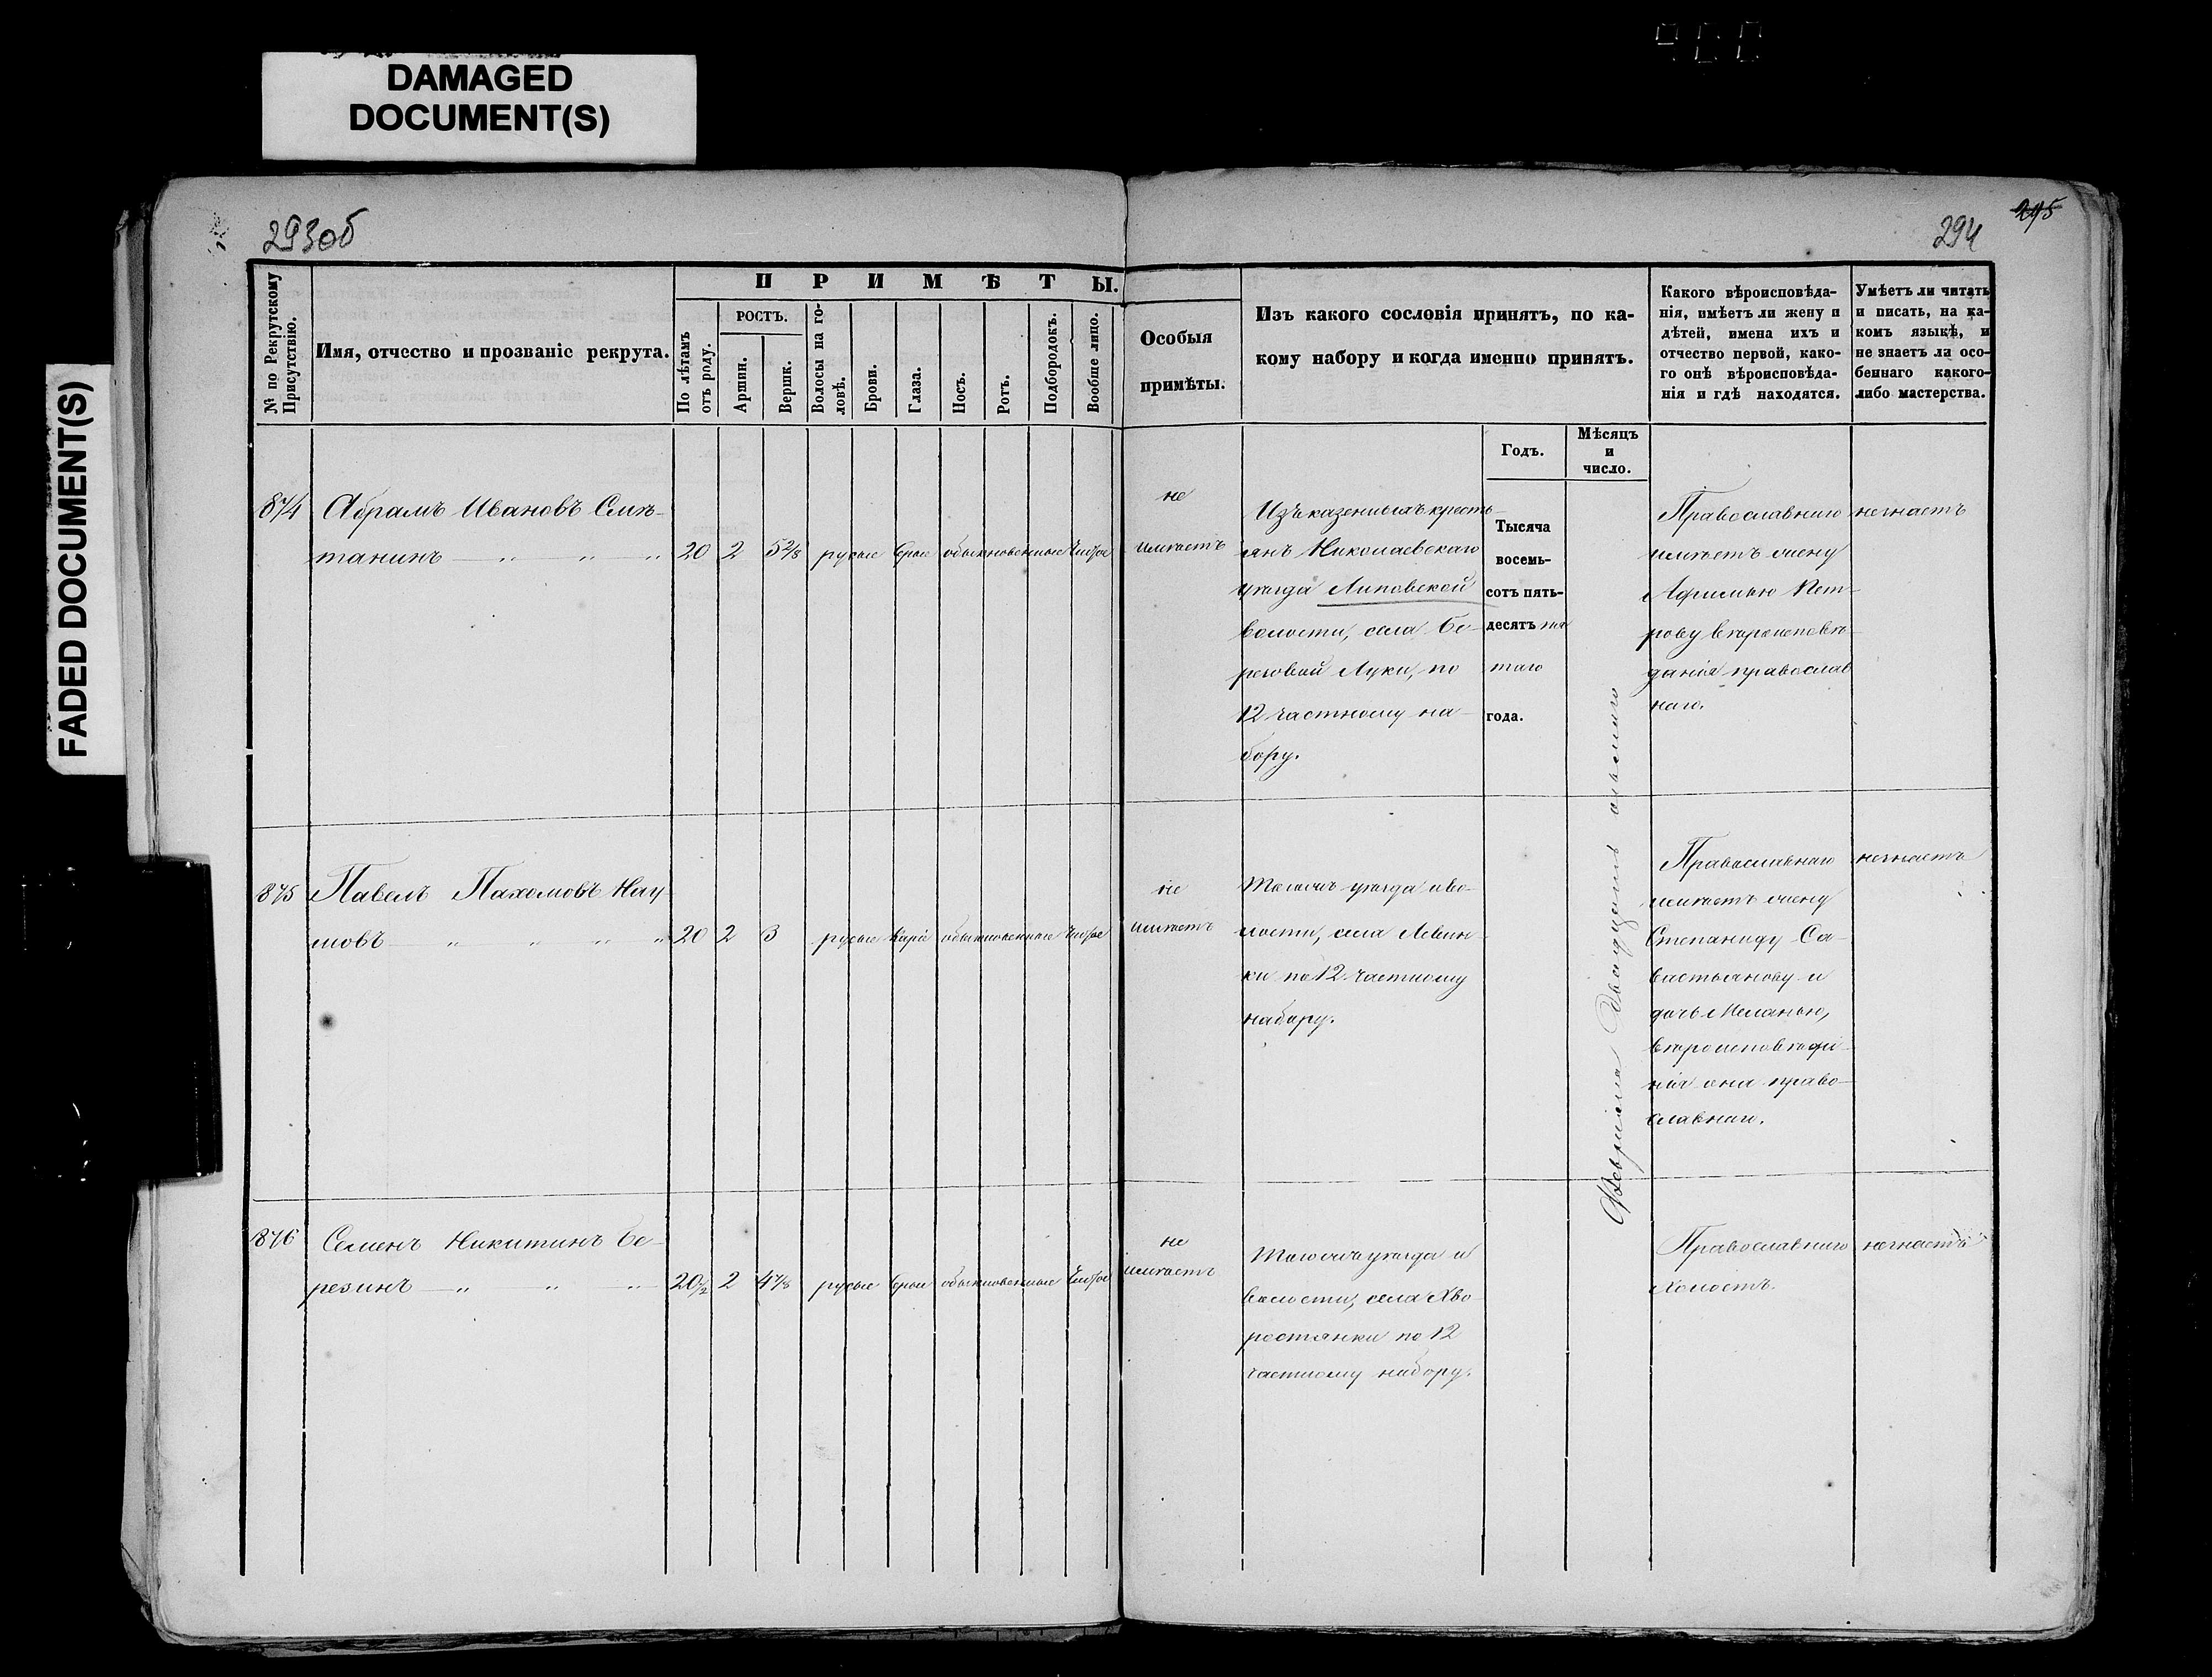 DAMAGED
DOCUMENT(S)
FADED DOCUMENT(S)
293об
294
295
№ по Рекрутскому
Присутствію.
Имя, отчество и прозваніе рекрута.
ПРИМѢТЫ.
По лѣтамъ
отъ роду.
РОСТЪ.
Аршин.
Вершк.
Волосы на го-
ловѣ.
Брови.
Глаза.
Носъ.
Ротъ.
Подбородокъ.
Вообще лицо.
Особыя
примѣты.
Изъ какого сословія принятъ, по ка-
кому набору и когда именно принятъ.
Годъ.
Мѣсяцъ
и
число.
Какого вѣроисповѣда-
нія, имѣетъ ли жену и
дѣтей, имена ихъ и
отчество первой, како-
го онѣ вѣроисповѣда-
нія и гдѣ находятся.
Умѣетъ ли читать
и писать, на ка-
комъ языкѣ, и
не знаетъ ли осо-
беннаго какого-
либо мастерства.
874 Абрамъ Ивановъ Смѣ-
танинъ — „ „ „ 20 2 5 2/8 русые сѣрые обыкновенные чистое
не
имѣетъ
Изъ казенныхъ кресть-
янъ Николаевскаго
уѣзда Липовской
волости, села Бе-
реговой Луки, по
12 частному на-
бору.
Тысяча
восемь-
сотъ пять-
десятъ пя
таго
года.
Февраля двадцать осьмаго
Православнаго
имѣетъ жену
Афимью Пет-
рову вѣроисповѣ-
данія православ
наго.
незнаетъ
875 Павелъ Пахомовъ Нау
мовъ — „ „ „ „ 20 2 3 русые каріе обыкновенные чистое
не
имѣетъ
Тогожъ уѣзда и во-
лости, села Левин-
ки по 12 частному
набору.
Православнаго
имѣетъ жену
Степаниду Са-
вастьянову и
дочь Меланью,
вѣроисповѣда-
нія они право-
славнаго.
незнаетъ
876 Семенъ Никитинъ Бе-
резинъ — „ „ „ 20 1/2 2 4 7/8 русые сѣрые обыкновенные чистое
не
имѣетъ
Тогожъ уѣзда и
волости, села Хво
ростянки по 12
частному набору.
Православнаго
холостъ.
незнаетъ